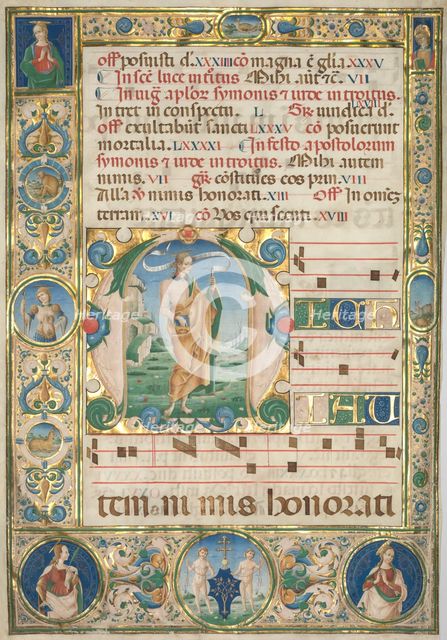 Off posuisti d. XXXIIII cō magna ē glīa XXXV
In scē luce introitus Mihi aut̄ ē. VII
In uig̃ aplor̄ symonis & iude introitus.
Intret in conspectu. L Gr̄ uindica d. LXVIII
Off exultabūt sancti LXXXV cō posuerunt
mortalia. LXXXXI In festo apostolorum
symonis & iude introitus. Mihi autem
nimis. VII gr̄ cōstitues eos prin. VIII
Alla. nimis honorati. XIII Off In omnē
terram. XVI cō Vos qui secuti. XVIII
M
IHI
AU
tem nimis honorati
heritage images